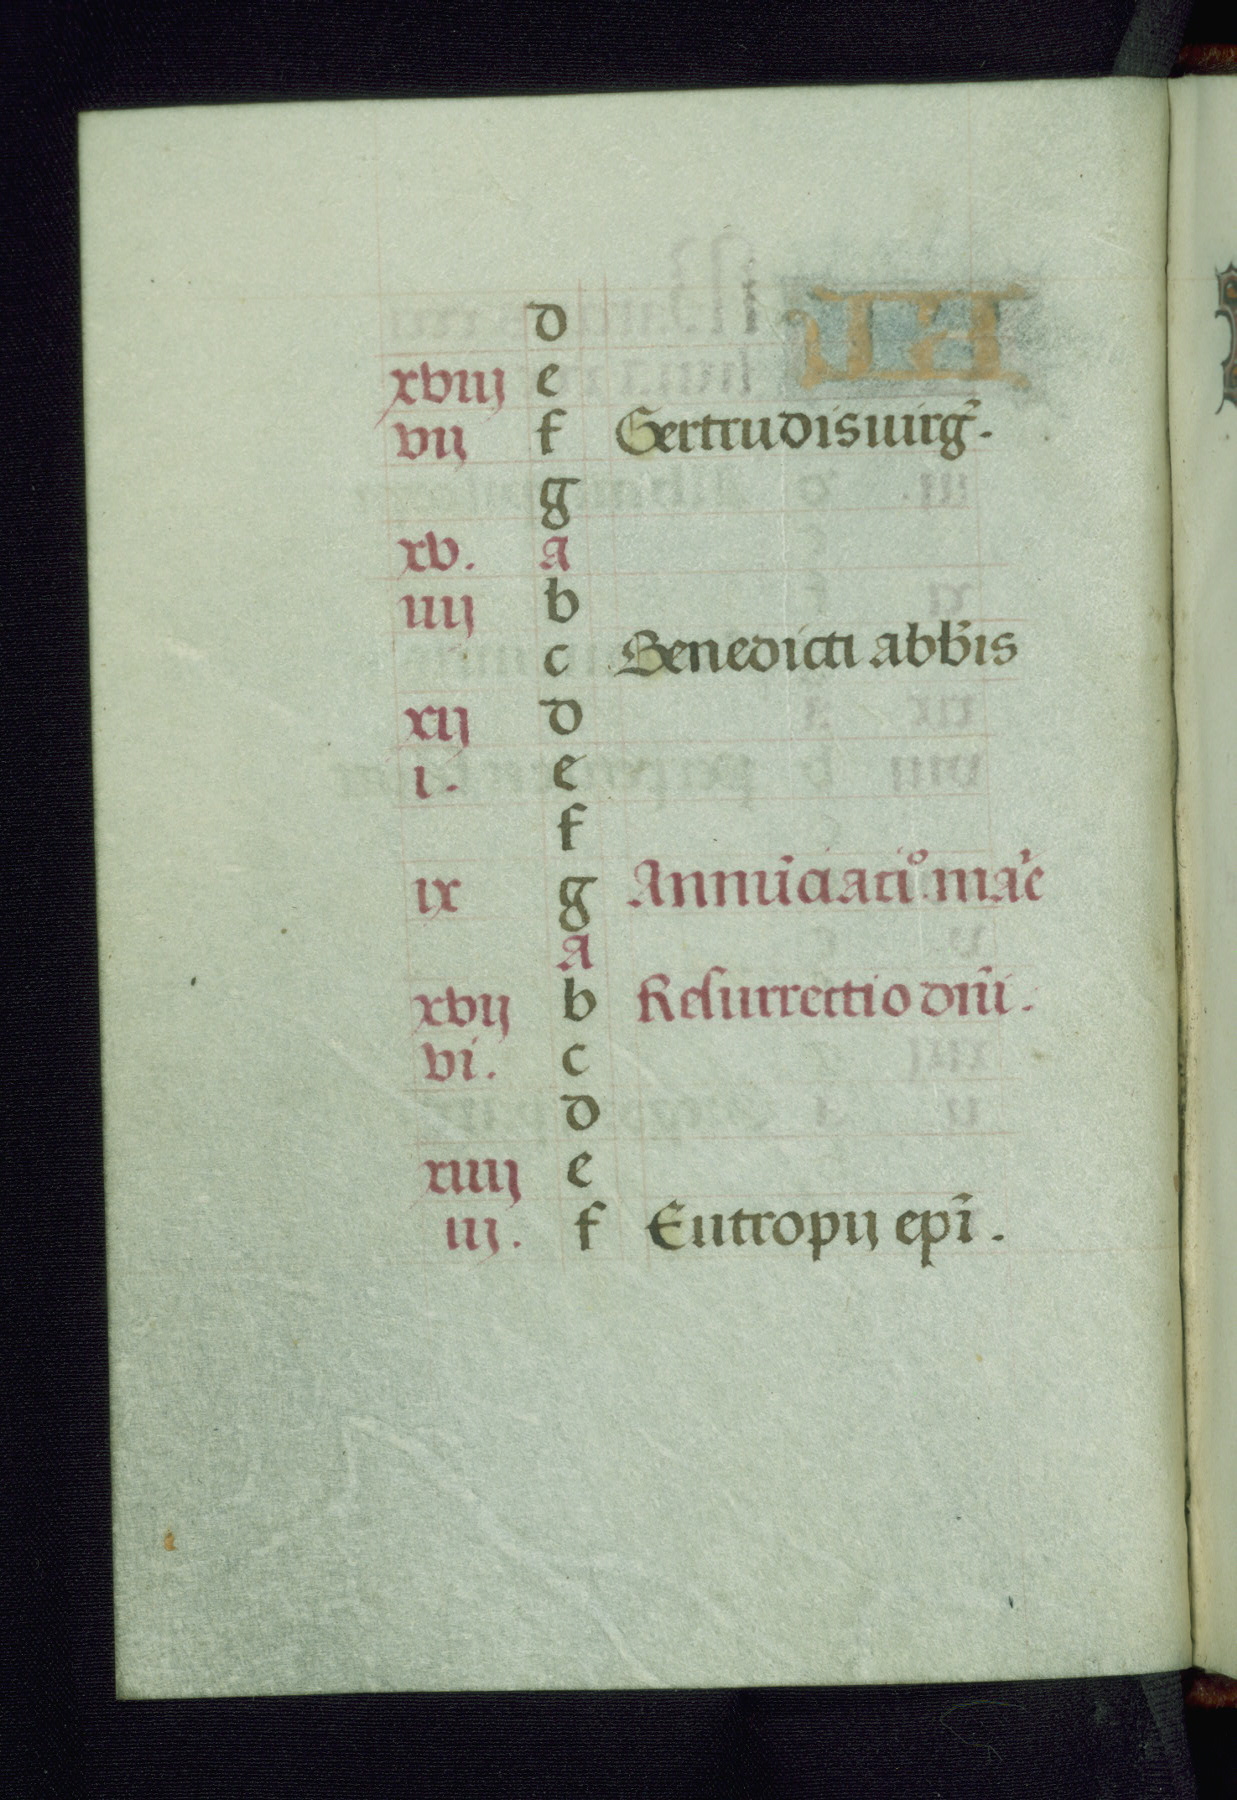 d
xviij e
vij f Gertrudis uirg̃.
g
xv. a
iiij b
c Benedicti abb̃is
xij d
i. e
f
ix g Annũciatiͦ. mãe
a
xvij b Resurrectio dñi.
vi. c
d
xiiij e
iij. f Eutropij ep̃i.